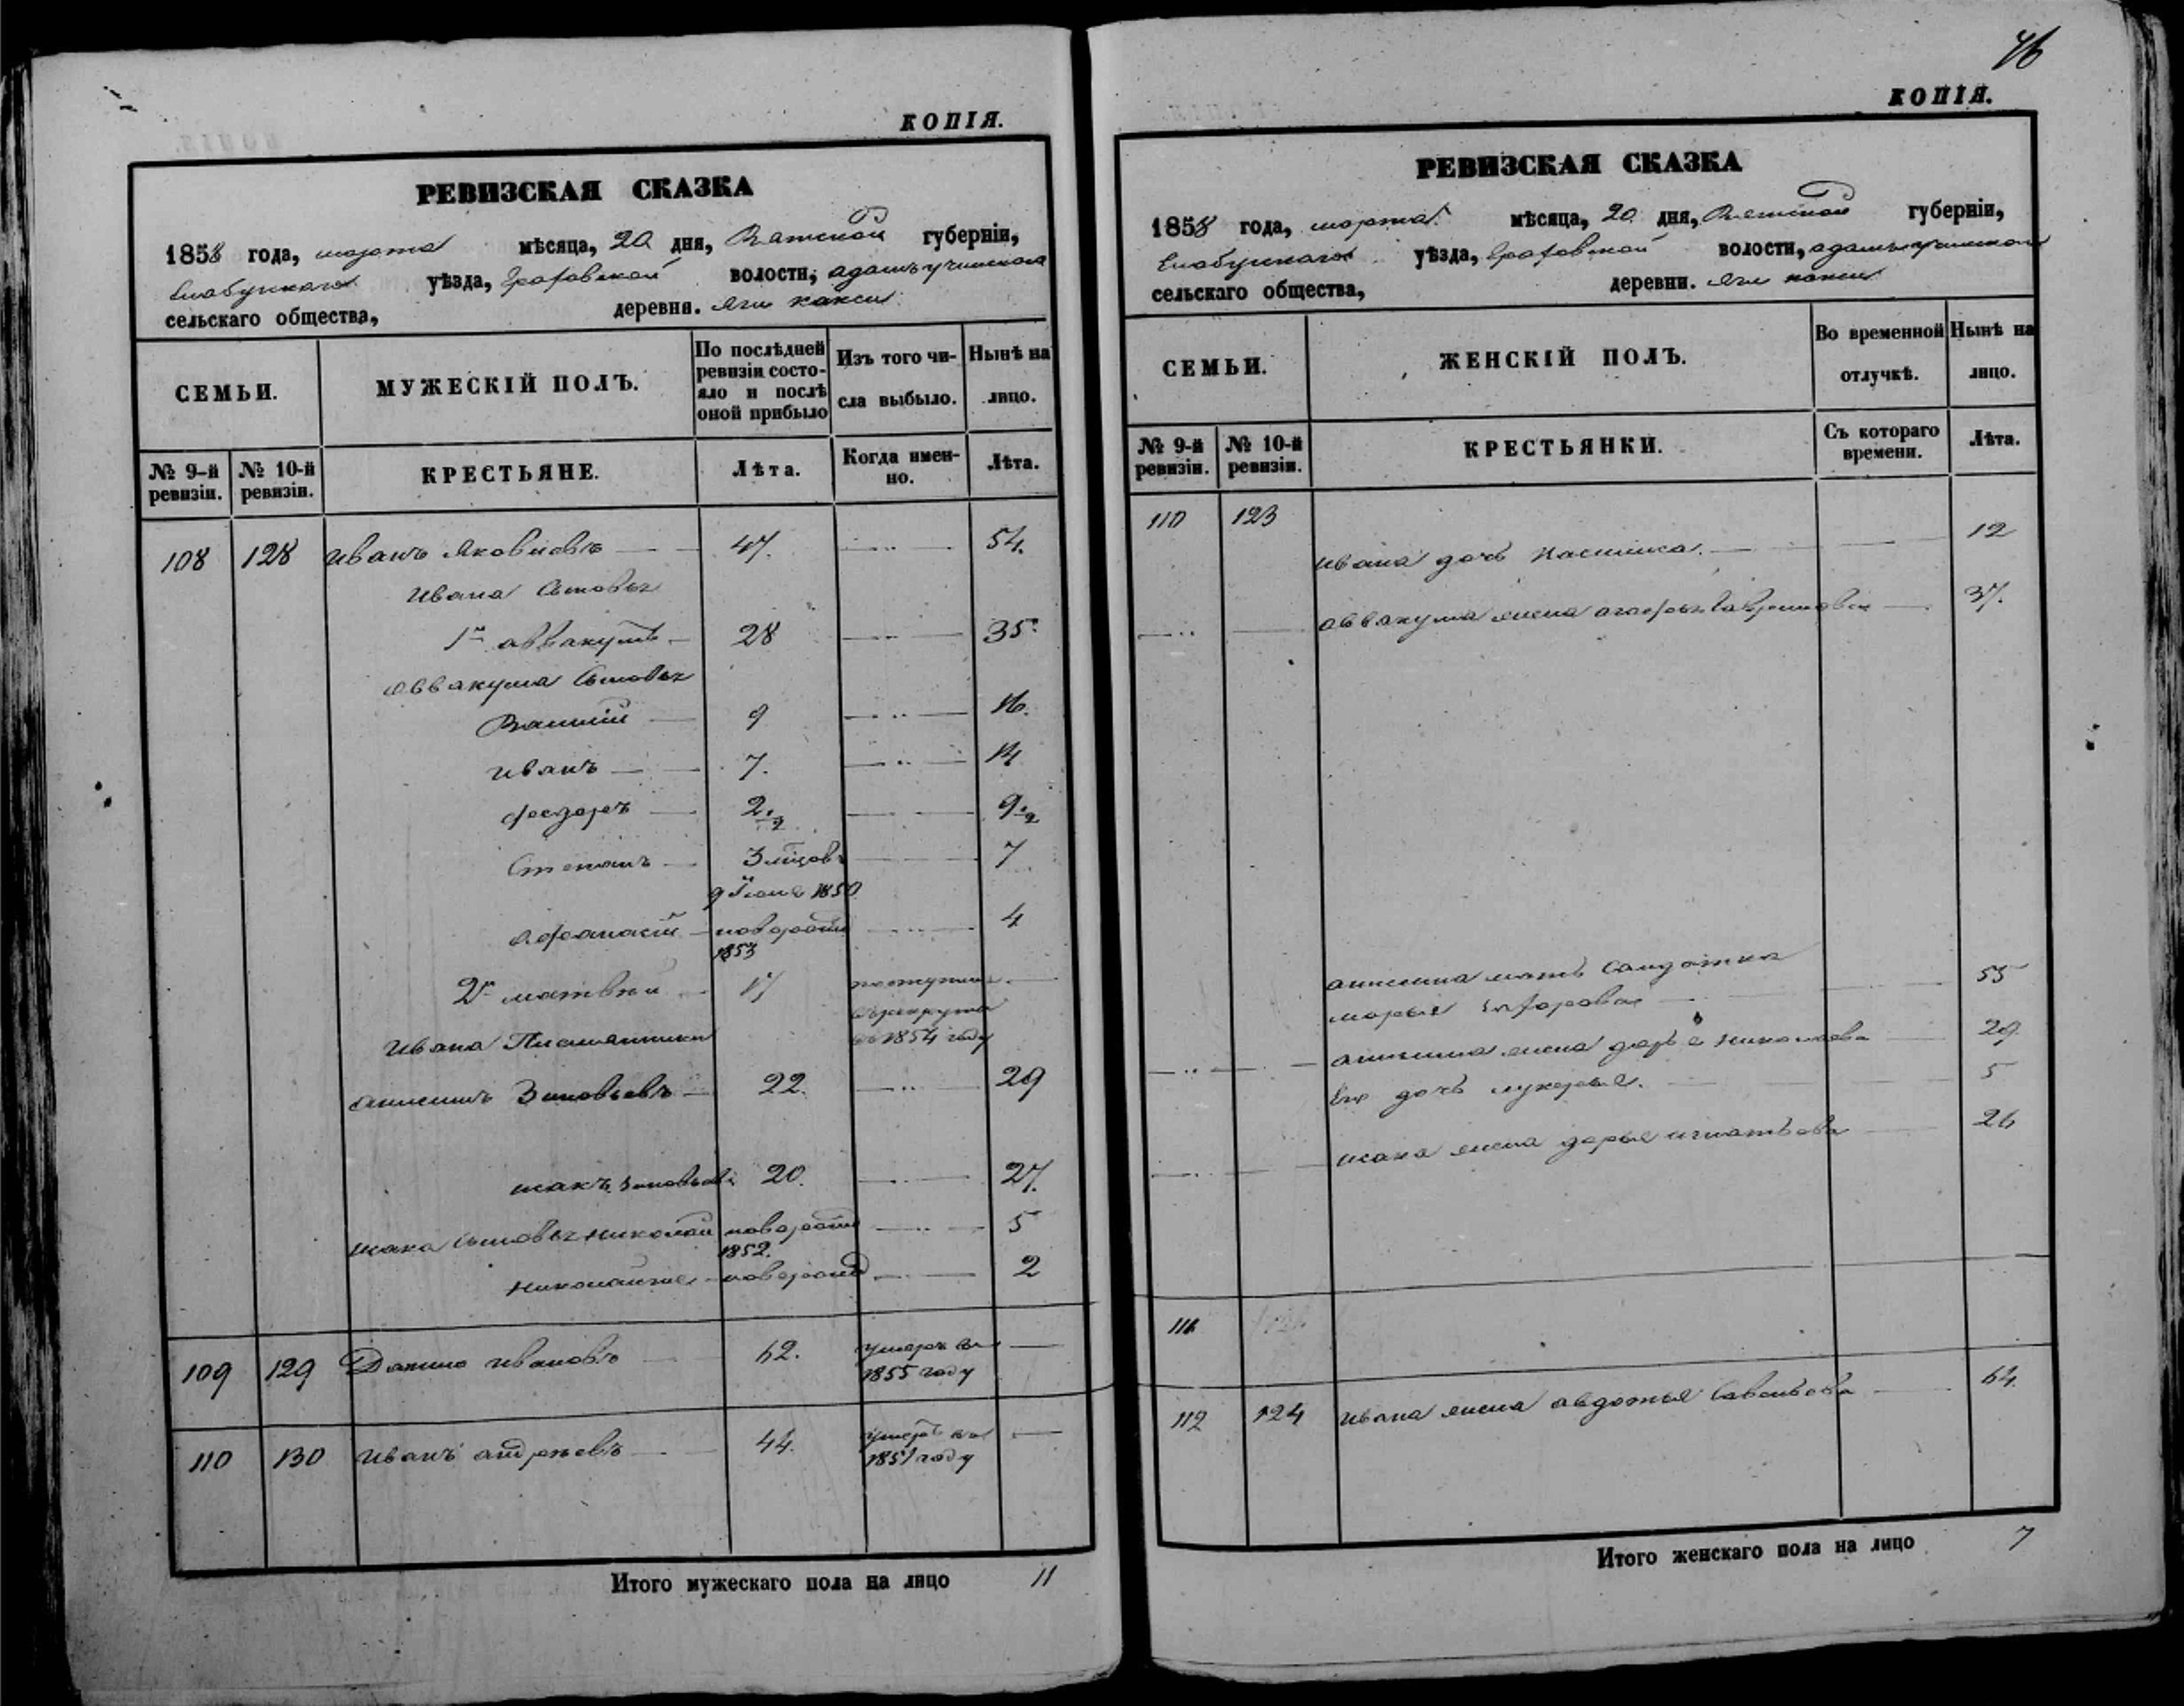 КОПІЯ.
РЕВИЗСКАЯ СКАЗКА
1858 года, марта мѣсяца, 20 дня, Вятской губерніи,
Елабужскаго уѣзда, Граховской волости, Адамъучинскаго
сельскаго общества, деревни. Яги какси
СЕМЬИ.
МУЖЕСКІЙ ПОЛЪ.
По послѣдней ревизіи состояло и послѣ оной прибыло
Изъ того числа выбыло.
Нынѣ на лицо.
№ 9-й ревизіи.
№ 10-й ревизіи.
КРЕСТЬЯНЕ.
Лѣта.
Когда именно.
Лѣта.
108 128 Иванъ Яковлевъ 47. 54.
Ивана Сыновья
1й Аввакумъ 28 35.
Аввакума Сыновья
9 16.
Иванъ 7. 14
Федоръ 2 1/2 9 1/2
Степанъ 3 мѣсяцовъ 7
9 Іюня 1850
Афанасій новорожд 4
1853
2й Матвѣй 17 поступилъ
въ рекруты
въ 1854 году
Ивана Племянники
Анисимъ Зиновьевъ 22. 29
Исакъ Зиновьевъ 20. 27.
Исака Сыновья Николай новорожд 5
1852.
новорожд 2
109 129 Данило Ивановъ 62. умеръ въ
1855 году
110 130 Иванъ Андреевъ 44. умеръ въ
1851 году
Итого мужескаго пола на лицо 11
46
КОПІЯ.
РЕВИЗСКАЯ СКАЗКА
1858 года, марта мѣсяца, 20 дня, Вятской губерніи,
Елабужскаго уѣзда, Граховской волости, Адамъучинскаго
сельскаго общества, деревни. Яги какси
СЕМЬИ.
ЖЕНСКІЙ ПОЛЪ.
Во временной отлучкѣ.
Нынѣ на лицо.
№ 9-й ревизіи.
№ 10-й ревизіи.
КРЕСТЬЯНКИ.
Съ котораго времени.
Лѣта.
110 123
Ивана дочь 12
Аввакума жена Агафья Гаврилова 37.
Анисима мать Солдатка
Марья 55
Анисима жена Дарья Николаева 29.
Его дочь Лукерья. 5
Исака жена Дарья Игнатьева 26
111
112 124 Ивана жена Авдотья Савельева 64.
Итого женскаго пола на лицо 7